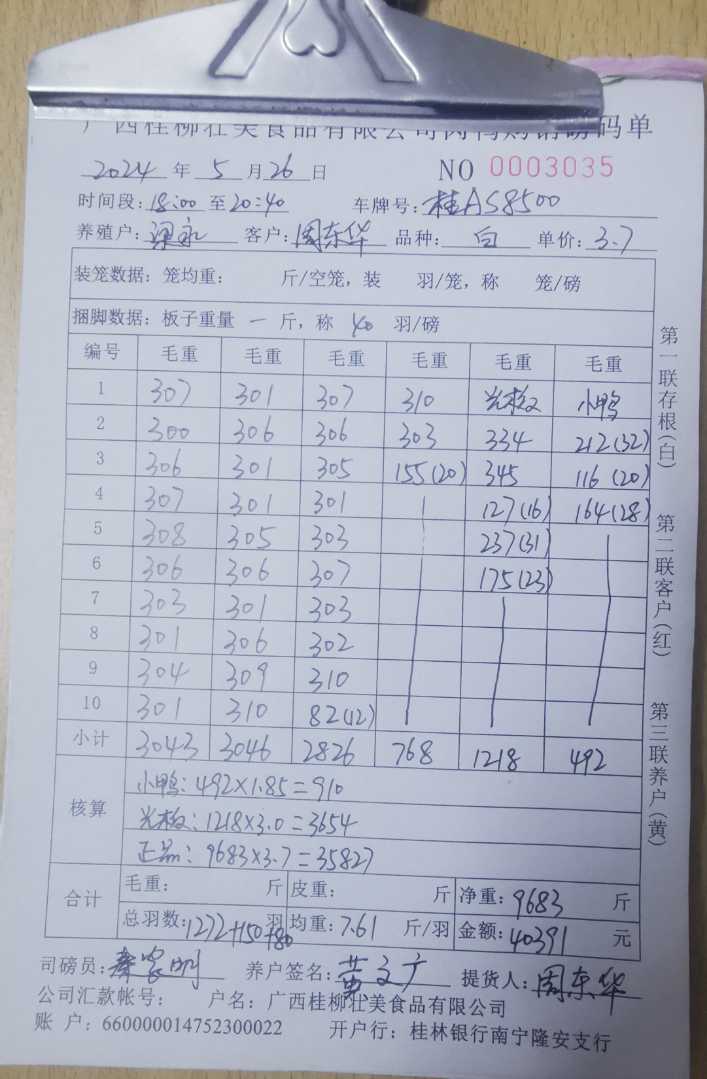 广西桂柳壮美食品有限公司肉鸭购销磅码单
2024 年 5 月 26 日 NO 0003035
时间段: 18:00 至 20:40 车牌号: 桂AS8500
养殖户: 梁永 客户: 周东华 品种: 白 单价: 3.7
装笼数据: 笼均重: 斤/空笼, 装 羽/笼, 称 笼/磅
捆脚数据: 板子重量 一 斤, 称 40 羽/磅
编号 毛重 毛重 毛重 毛重 毛重 毛重
1 307 301 307 310 光板 小鸭
2 300 306 306 303 334 212(32)
3 306 301 305 155(20) 345 116(20)
4 307 301 301 127(16) 164(28)
5 308 305 303 237(31)
6 306 306 307 175(23)
7 303 301 303
8 301 306 302
9 304 309 310
10 301 310 82(12)
小计 3043 3046 2826 768 1218 492
核算
小鸭: 492×1.85=910
光板: 1218×3.0=3654
正品: 9683×3.7=35827
合计 毛重: 斤 皮重: 斤 净重: 9683 斤
总羽数: 1272+150+80 羽 均重: 7.61 斤/羽 金额: 40391 元
司磅员: 秦家明 养户签名: 黄文广 提货人: 周东华
公司汇款帐号: 户名: 广西桂柳壮美食品有限公司
账 户: 660000014752300022 开户行: 桂林银行南宁隆安支行
第一联存根(白)
第二联客户(红)
第三联养户(黄)